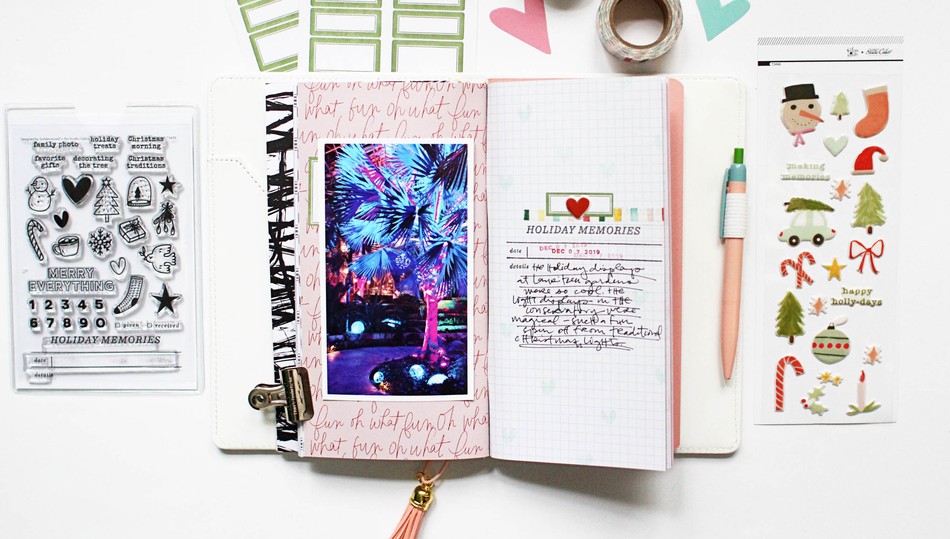 family photo
holiday treats
Christmas morning
favorite gifts
decorating the tree
Christmas traditions
MERRY EVERYTHING
1 2 3 4 5
6 7 8 9 0
given
received
HOLIDAY MEMORIES
date
details
oh what fun oh what
what fun oh what fun
fun oh what fun oh what
what, fun oh what fun
HOLIDAY MEMORIES
date DEC 0 7, 2019
details the Holiday displays
at
were so cool. the
light displays in the
conservatory were
magical - such a fun
spin off from traditional
Christmas lights
making
memories
happy
holly-days